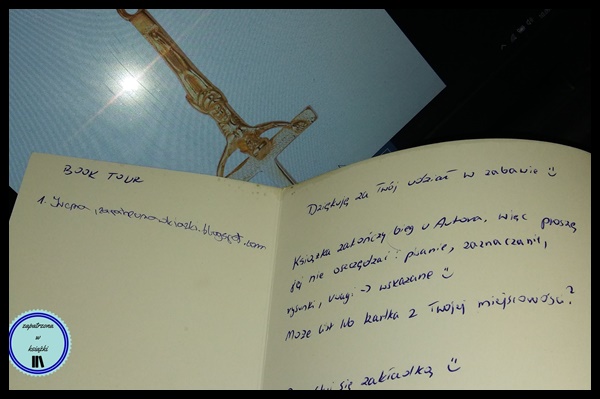 BOOK TOUR
1. Iwona, zapatrzonawksiazki.blogspot.com
Dziękuję za Twój udział w zabawie :)
Książka zakończy bieg u Autora, więc proszę
jej nie oszczędzać: pisanie, zaznaczanie,
rysunki, uwagi → wskazane :)
Może list lub kartka z Twojej miejscowości?
się zakładką :)
zapatrzona
w
książki